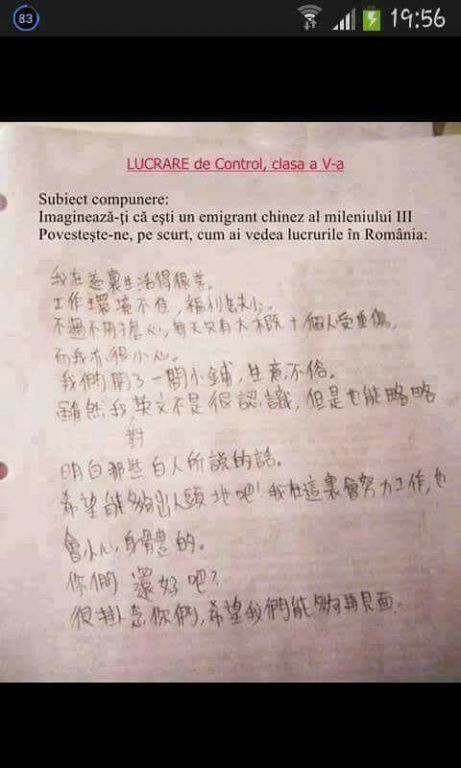 83
19:56
LUCRARE de Control, clasa a V-a
Subiect compunere:
Imaginează-ți că ești un emigrant chinez al mileniului III
Povestește-ne, pe scurt, cum ai vedea lucrurile în România:
我在這裏生活得很差。
工作環境不佳,福利也太小。
不過不用擔心,每天只有大概十個人受重傷,
而我亦很小心。
我們開了一間小鋪,生意不俗。
雖然我英文不是很認識,但是也能略略
對
明白那些白人所說的話。
希望能夠出人頭地吧!我在這裏會努力工作,也
會小心身體的。
你們還好吧?
很掛念你們,希望我們能夠再見面。